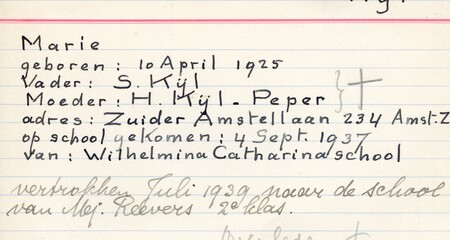 Marie
geboren : 10 April 1925
Vader : S. Kijl
Moeder : H. Kijl - Peper
adres : Zuider Amstellaan 234 Amst. Z
op school gekomen : 4 Sept. 1937
van : Wilhelmina Catharina school
vertrokken Juli 1939 naar de school
van Mej. Reevers 2e klas.